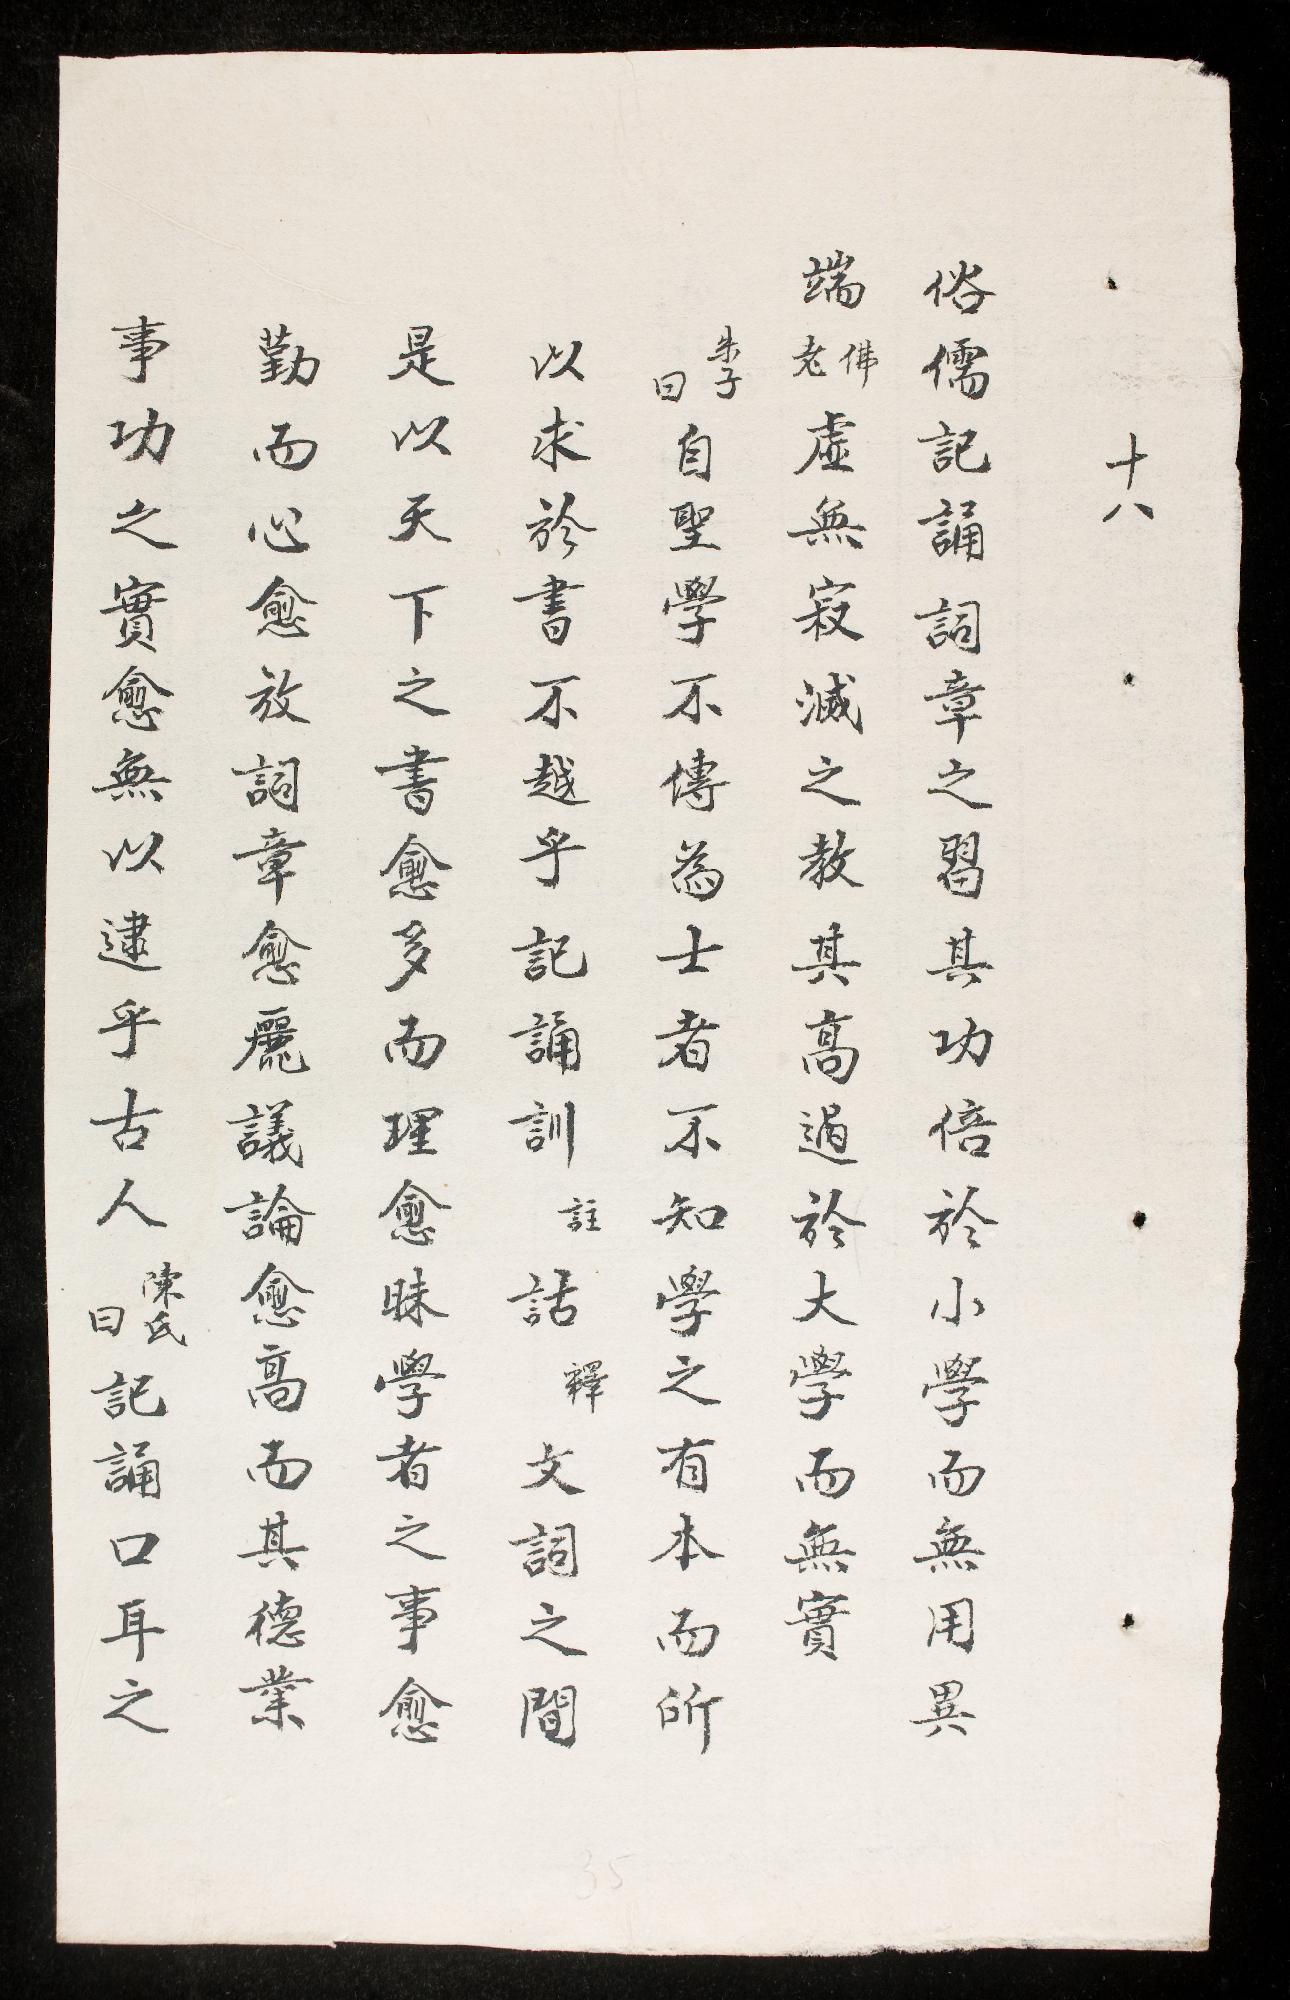 十八
俗儒記誦詞章之習其功倍於小學而無用異
端佛老虛無寂滅之教其高過於大學而無實
朱子曰自聖學不傳為士者不知學之有本而所
以求於書不越乎記誦訓註詁釋文詞之間
是以天下之書愈多而理愈昧學者之事愈
勤而心愈放詞章愈麗議論愈高而其德業
事功之實愈無以逮乎古人陳氏曰記誦口耳之
35